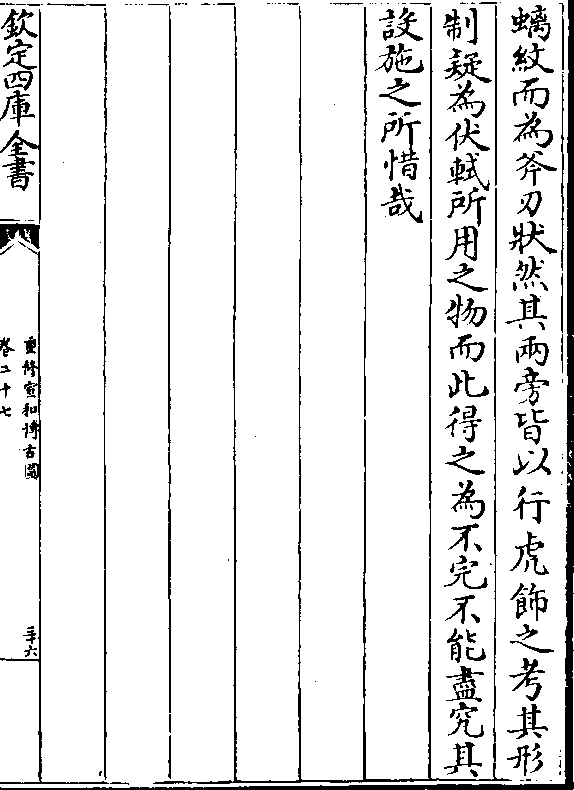 螭紋而為斧刃狀然其兩旁皆以行虎飾之考其形
制疑為伏軾所用之物而此得之為不完不能盡究其
設施之所惜哉
欽定四庫全書
重修宣和博古圖
卷二十七
三十六